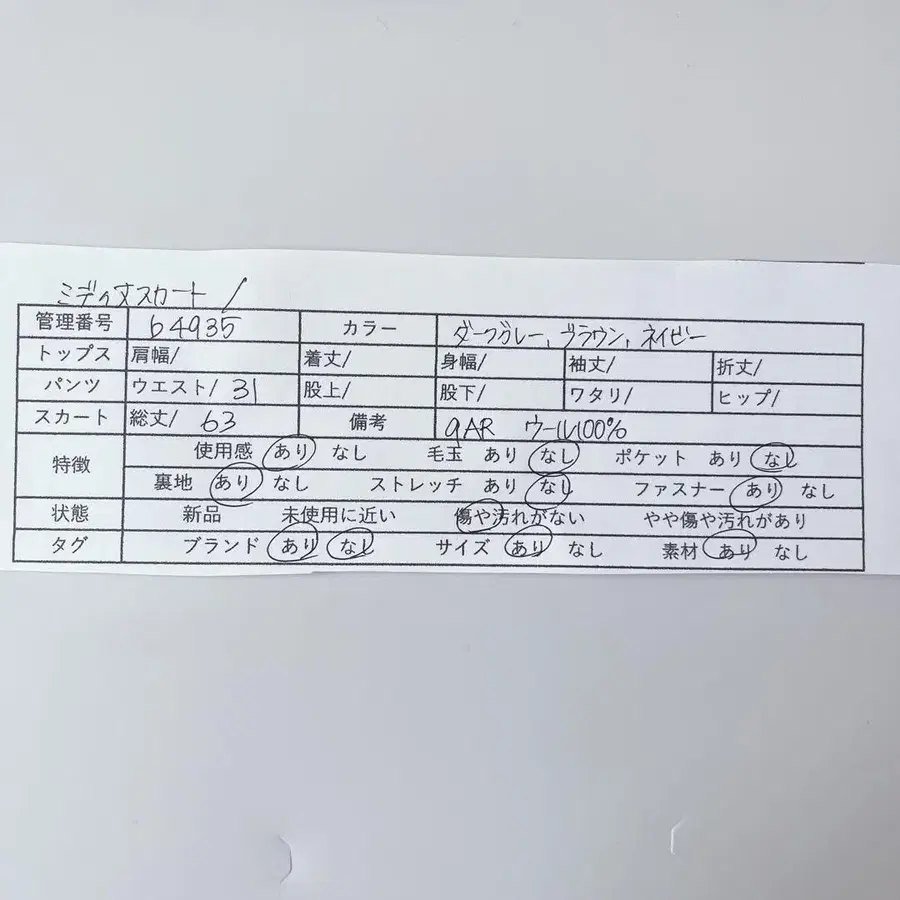 ミディ丈スカート /
管理番号 64935 カラー ダークグレー、ブラウン、ネイビー
トップス 肩幅/ 着丈/ 身幅/ 袖丈/ 折丈/
パンツ ウエスト/ 31 股上/ 股下/ ワタリ/ ヒップ/
スカート 総丈/ 63 備考 9AR ウール100%
特徴 使用感 あり なし 毛玉 あり なし ポケット あり なし
裏地 あり なし ストレッチ あり なし ファスナー あり なし
状態 新品 未使用に近い 傷や汚れがない やや傷や汚れがあり
タグ ブランド あり なし サイズ あり なし 素材 あり なし